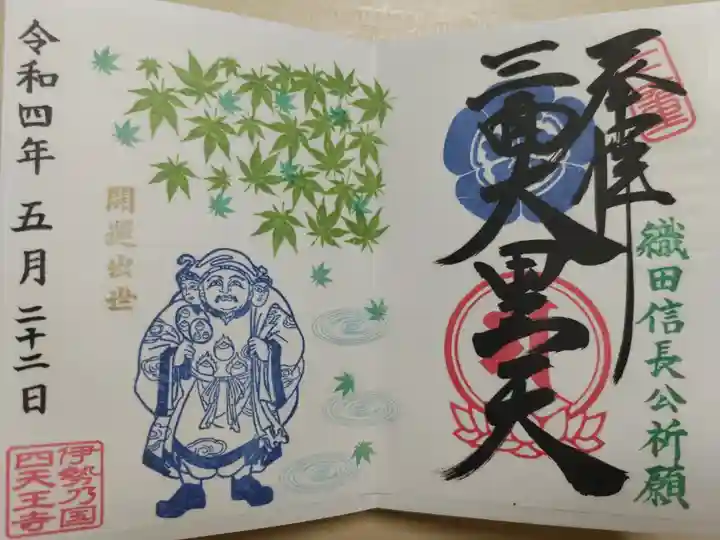 奉拝
三面大黒天
織田信長公祈願
開運出世
令和四年 五月 二十二日
伊勢乃国
四天王寺